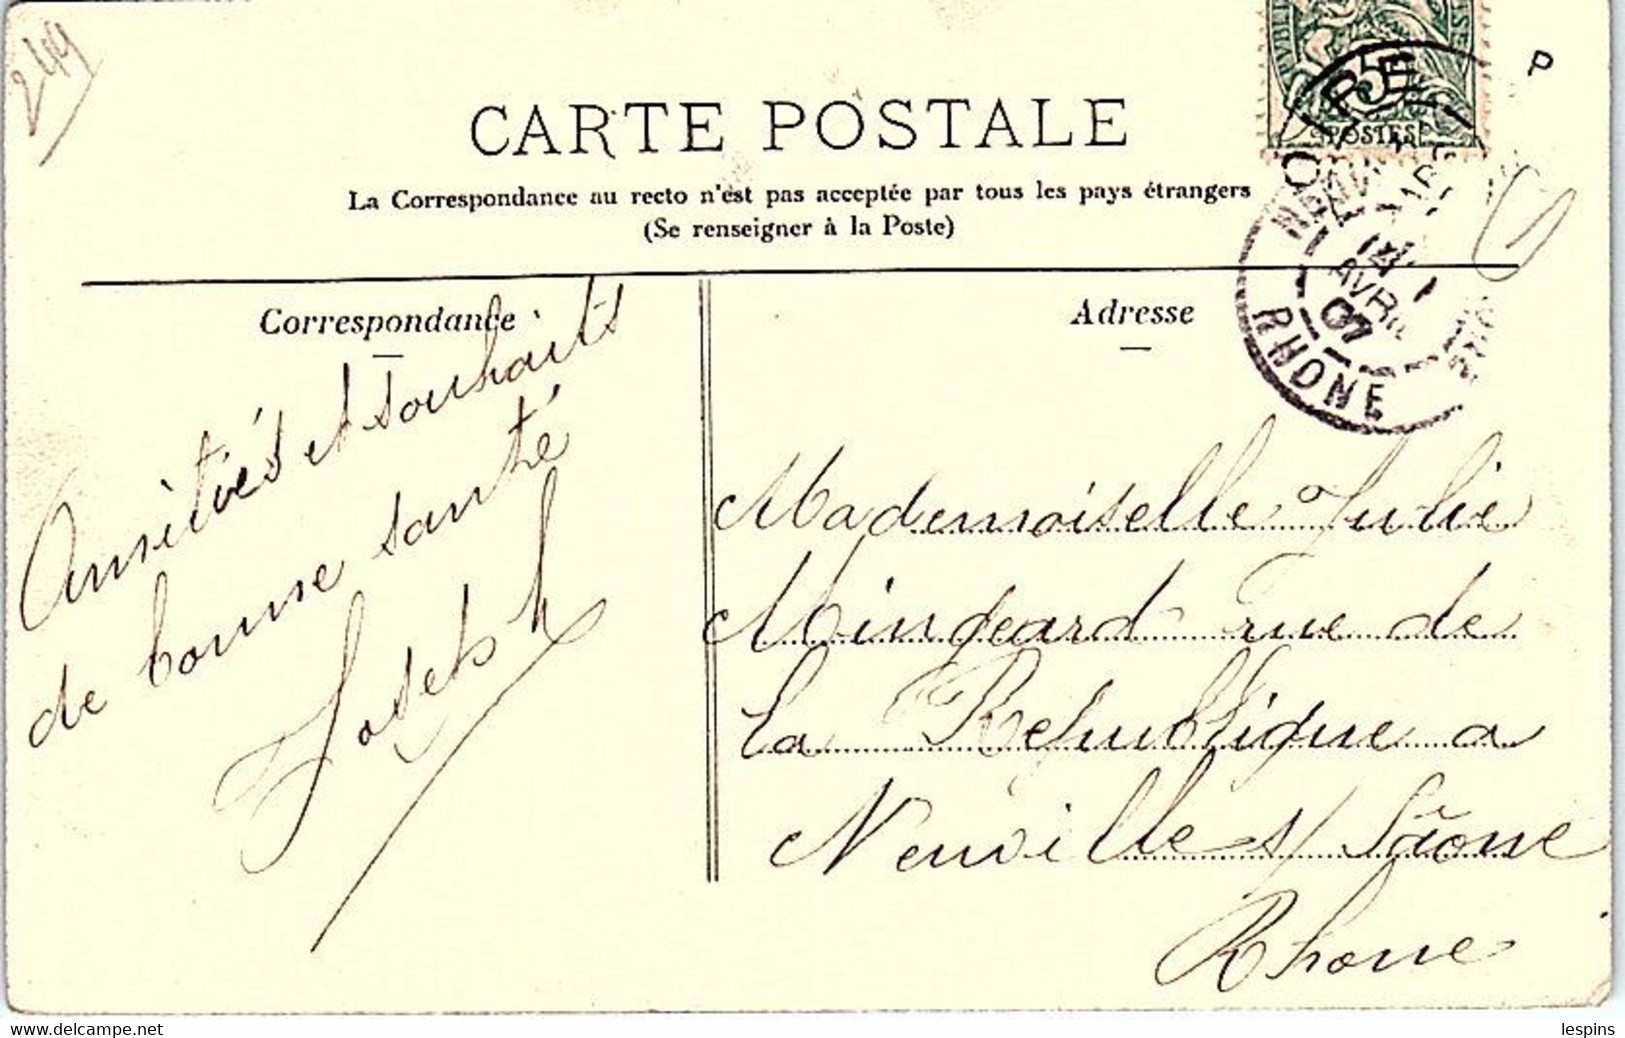 249
P
5
POSTES
CARTE POSTALE
La Correspondance au recto n'est pas acceptée par tous les pays étrangers
(Se renseigner à la Poste)
AVRIL
07
RHONE
Correspondance
Adresse
Amitiés et souhaits
de bonne santé
Joseph
Mademoiselle Julie
Mingeard rue de
la République a
Neuville s/ Sãone
Rhone
lespins